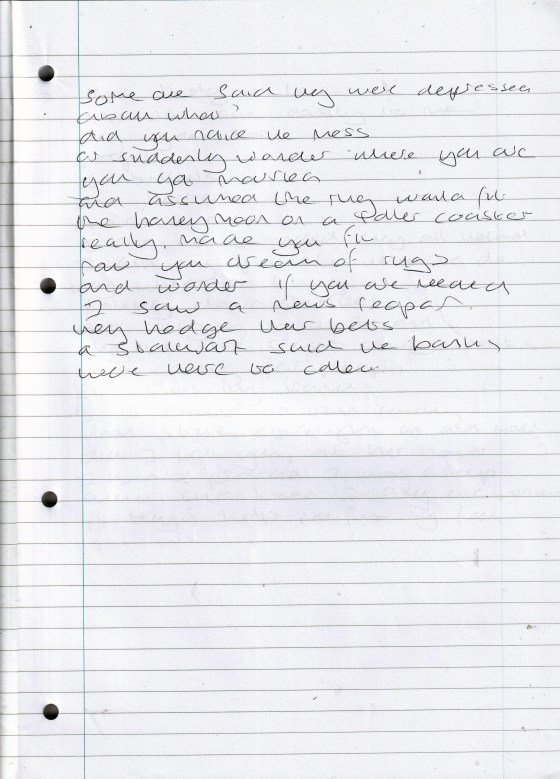 Someone said they were depressed
about what?
did you notice the mess
or suddenly wonder where you are
you got married
and assumed the ring would fit
the honeymoon on a roller coaster
really made you fit
now you dream of rugs
and wonder if you are needed
I saw a news report.
they hedge their bets
a stalwart said the banks
were here to